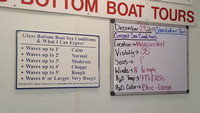 BOTTOM BOAT TOURS
Glass Bottom Boat Sea Conditions
& What I Can Expect
• Waves up to 1' Calm
• Waves up to 2' Normal
• Waves up to 3' Moderate
• Waves up to 4' Choppy
• Waves up to 5' Rough
• Waves 6' or Larger Very Rough
December 29
Current Sea Conditions
Location →
Visibility →
Seas → 1'
Winds → N 6 mph
H₂O Temp →
H₂O Color → Blue Green